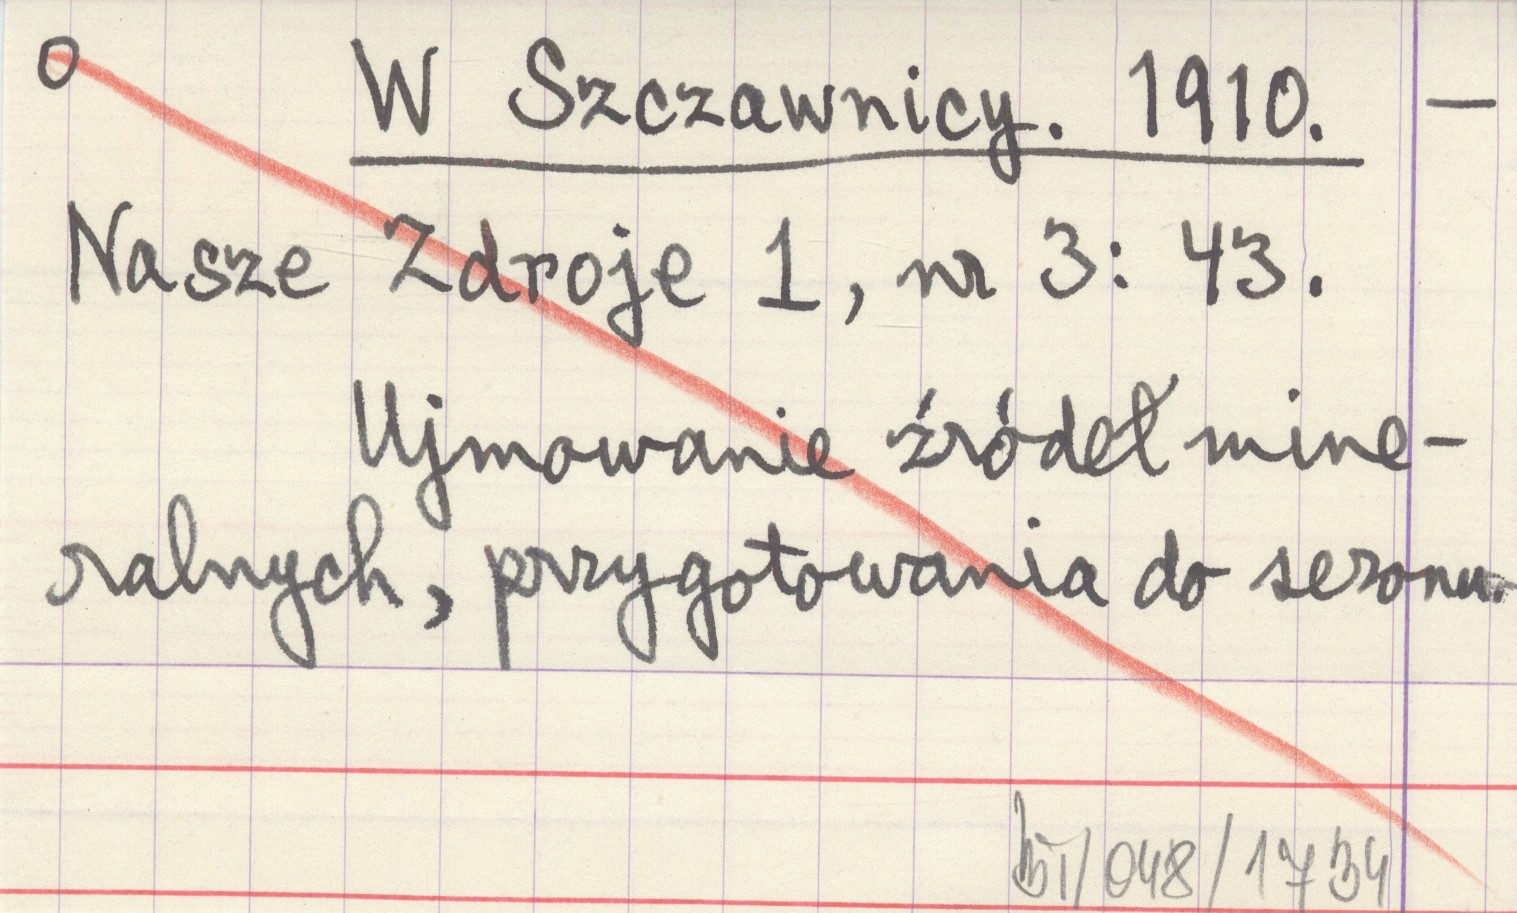 O W Szczawnicy. 1910. —
Nasze Zdroje 1, nr 3: 43.
Ujmowanie źródeł mine-
ralnych, przygotowania do sezonu.
/048/1734